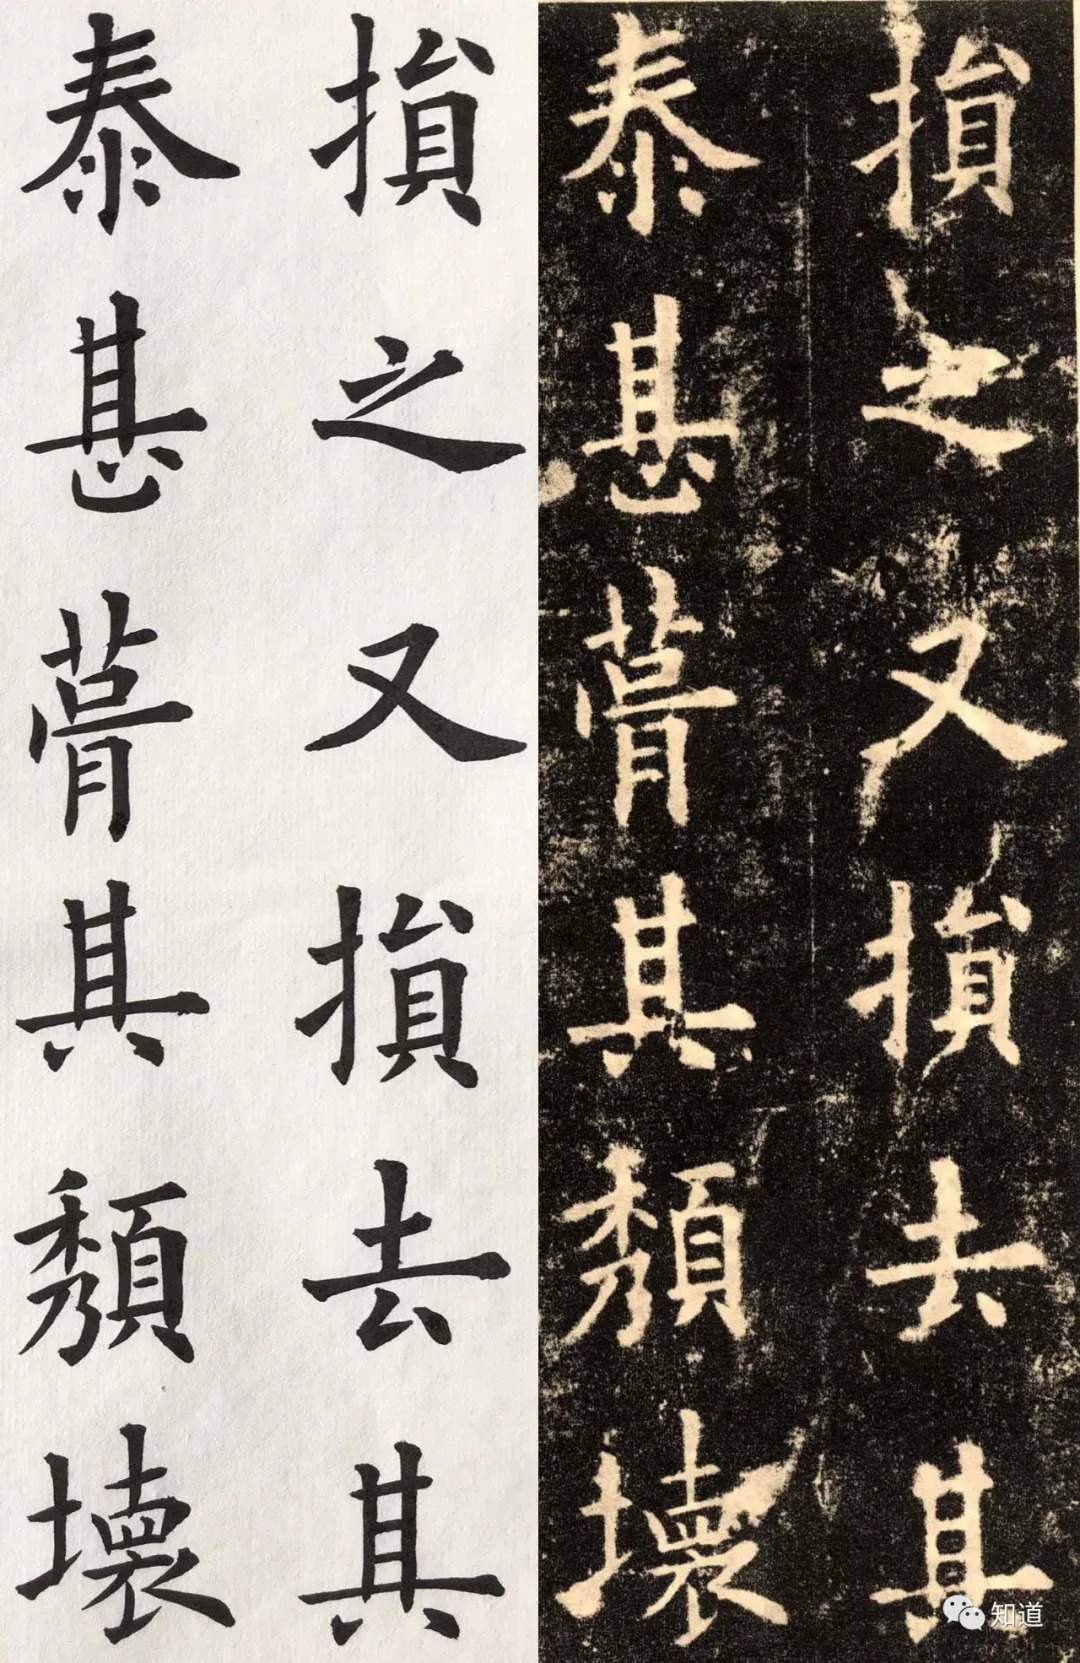 損之又損去其
泰甚葺其頹壞
損之又損去其
泰甚葺其頹壞
知道